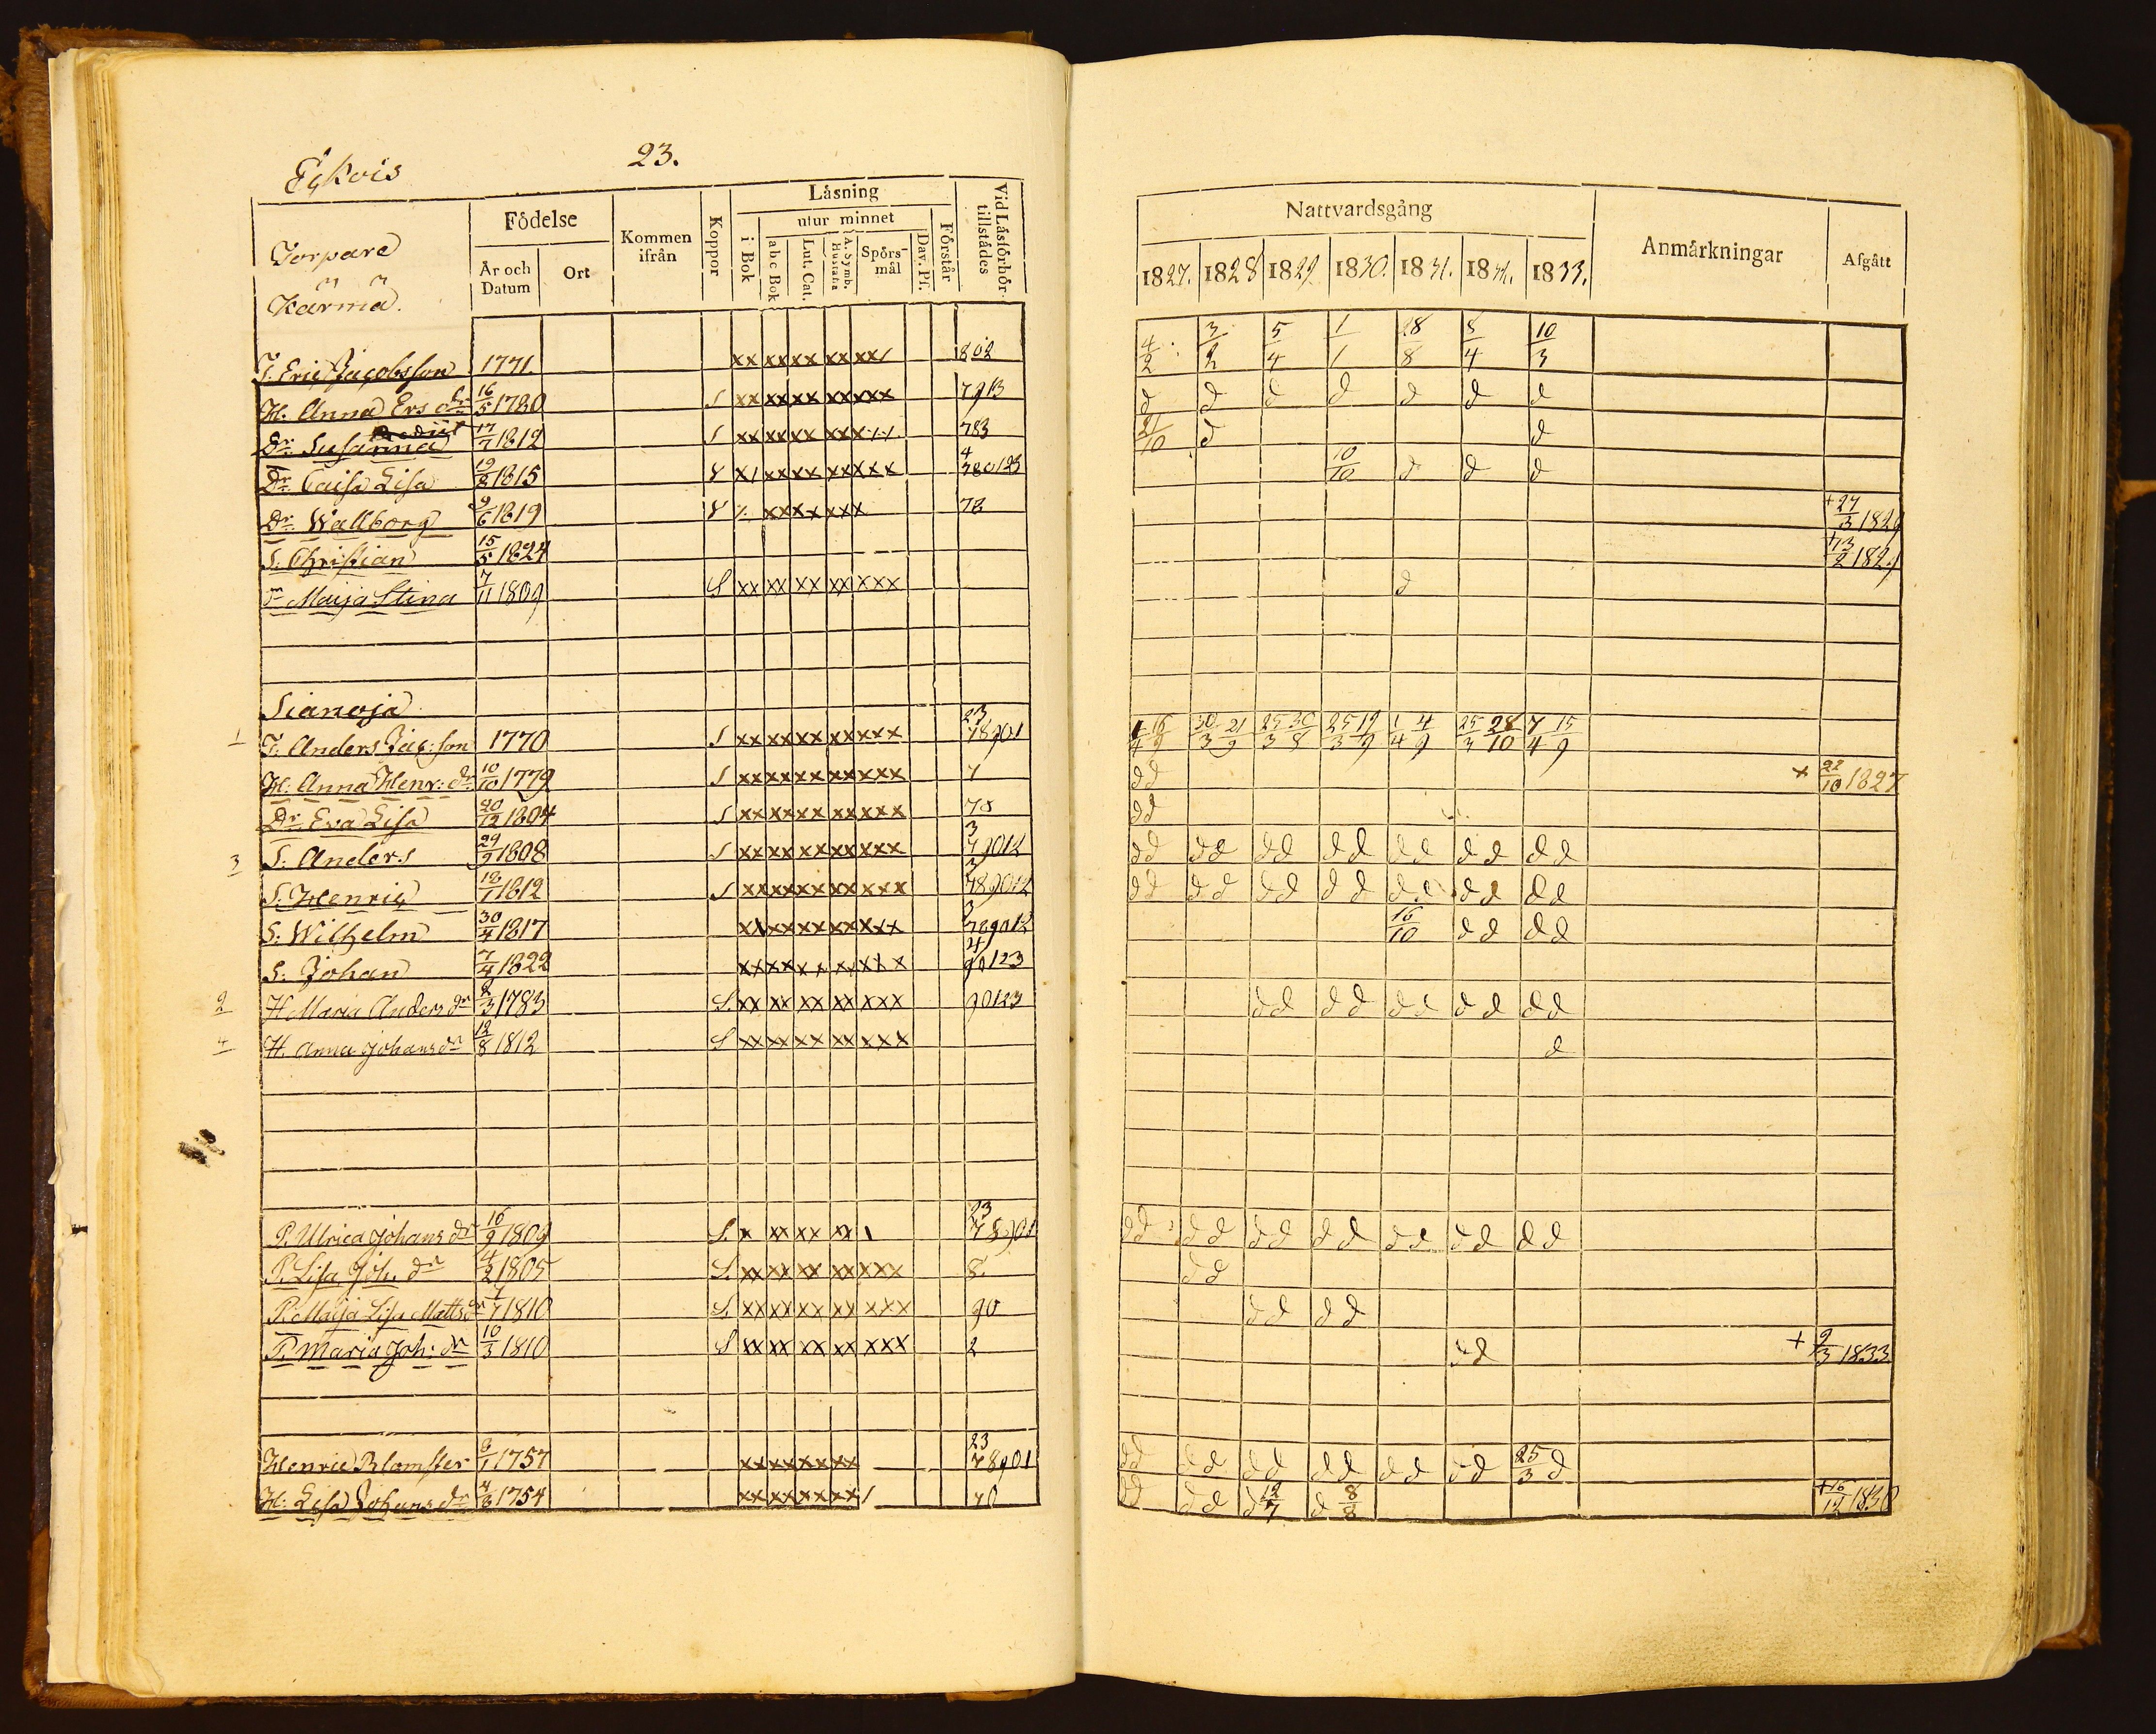 23.
Födelse
Kommen ifrån
Koppor
Låsning
utur minnet
i Bok
abc Bok
Lut. Cat.
A. Symb.
Hustafla
Spörs-mål
Dav. Pf.
Förstår
Vid Läsförhör tillstådes
År och Datum
Ort
Torpare
Kärmä.
T. Eric Jacobsson 1771 xx xx xx xx xx/ 802
H. Anna Ers dr 16/5 1780 S xx xx xx xx xxx
Dr. Susanna 17/7 1812 S 783
Dr. Caisa Lisa 19/8 1815 4 780123
Dr. Wallborg 9/6 1819 78
S. Christian 15/5 1824
Dr Maija Stina 7/11 1809 S xx xx xx xx xxx
Sianoja
1 T. Anders Jac:son 1770 S xx xx xx xx xxx 23 78901
H. Anna Henr: dr 10/10 1779 S xx xx xx xx xxx 7
Dr. Eva Lisa 20/12 1804 S xx xx xx xx xxx 78
3 S. Anders 29/9 1808 S xx xx xx xx xxx 3 79012
S. Henric 18/7 1812 S xx xx xx xx xxx 3 789012
S: Wilhelm 30/4 1817 3 789012
S: Johan 7/4 1822 4 90123
2 H Maria Anders dr 1783 S. xx xx xx xx xxx 90123
4 H. Anna Johans dr 12/8 1812 S xx xx xx xx xxx
P. Ulrica Johans dr 16/9 1809 S. x xx xx xx 23 78901
P. Lisa Joh. dr 4/2 1805 S. xx xx xx xx xxx 8.
P. Maija Lisa Matts dr 1810 S. xx xx xx xx xxx 90
P. Maria Joh: dr 10/3 1810 S xx xx xx xx xxx 2
Henric Blomster 1757 xx xx xx xx 23 78901
H: Lisa Johans dr 1754 xx xx xx xx/ 78
Nattvardsgång
Anmärkningar
Afgått
1827. 1828 1829 1830. 1831. 1833.
4/2 3/2 5/4 1/1 28/8 8/4 10/3
d d d d d d d
21/10 d d
10/10 d d d
+ 27/3 1829
+ 13/2 1829
d
1/4 16/9 30/3 21/9 25/3 30/8 25/3 19/9 1/4 4/9 25/3 28/10 7/4 15/9
dd + 22/10 1827
dd
dd dd dd dd dd dd dd
dd dd dd dd dd dd dd
16/10 dd dd
dd dd dd dd dd
d
dd dd dd dd dd dd dd
dd
dd dd
dd + 9/3 1833
dd dd dd dd dd dd 25/3 d
dd dd d 12/7 d 8/8 + 16/12 1830